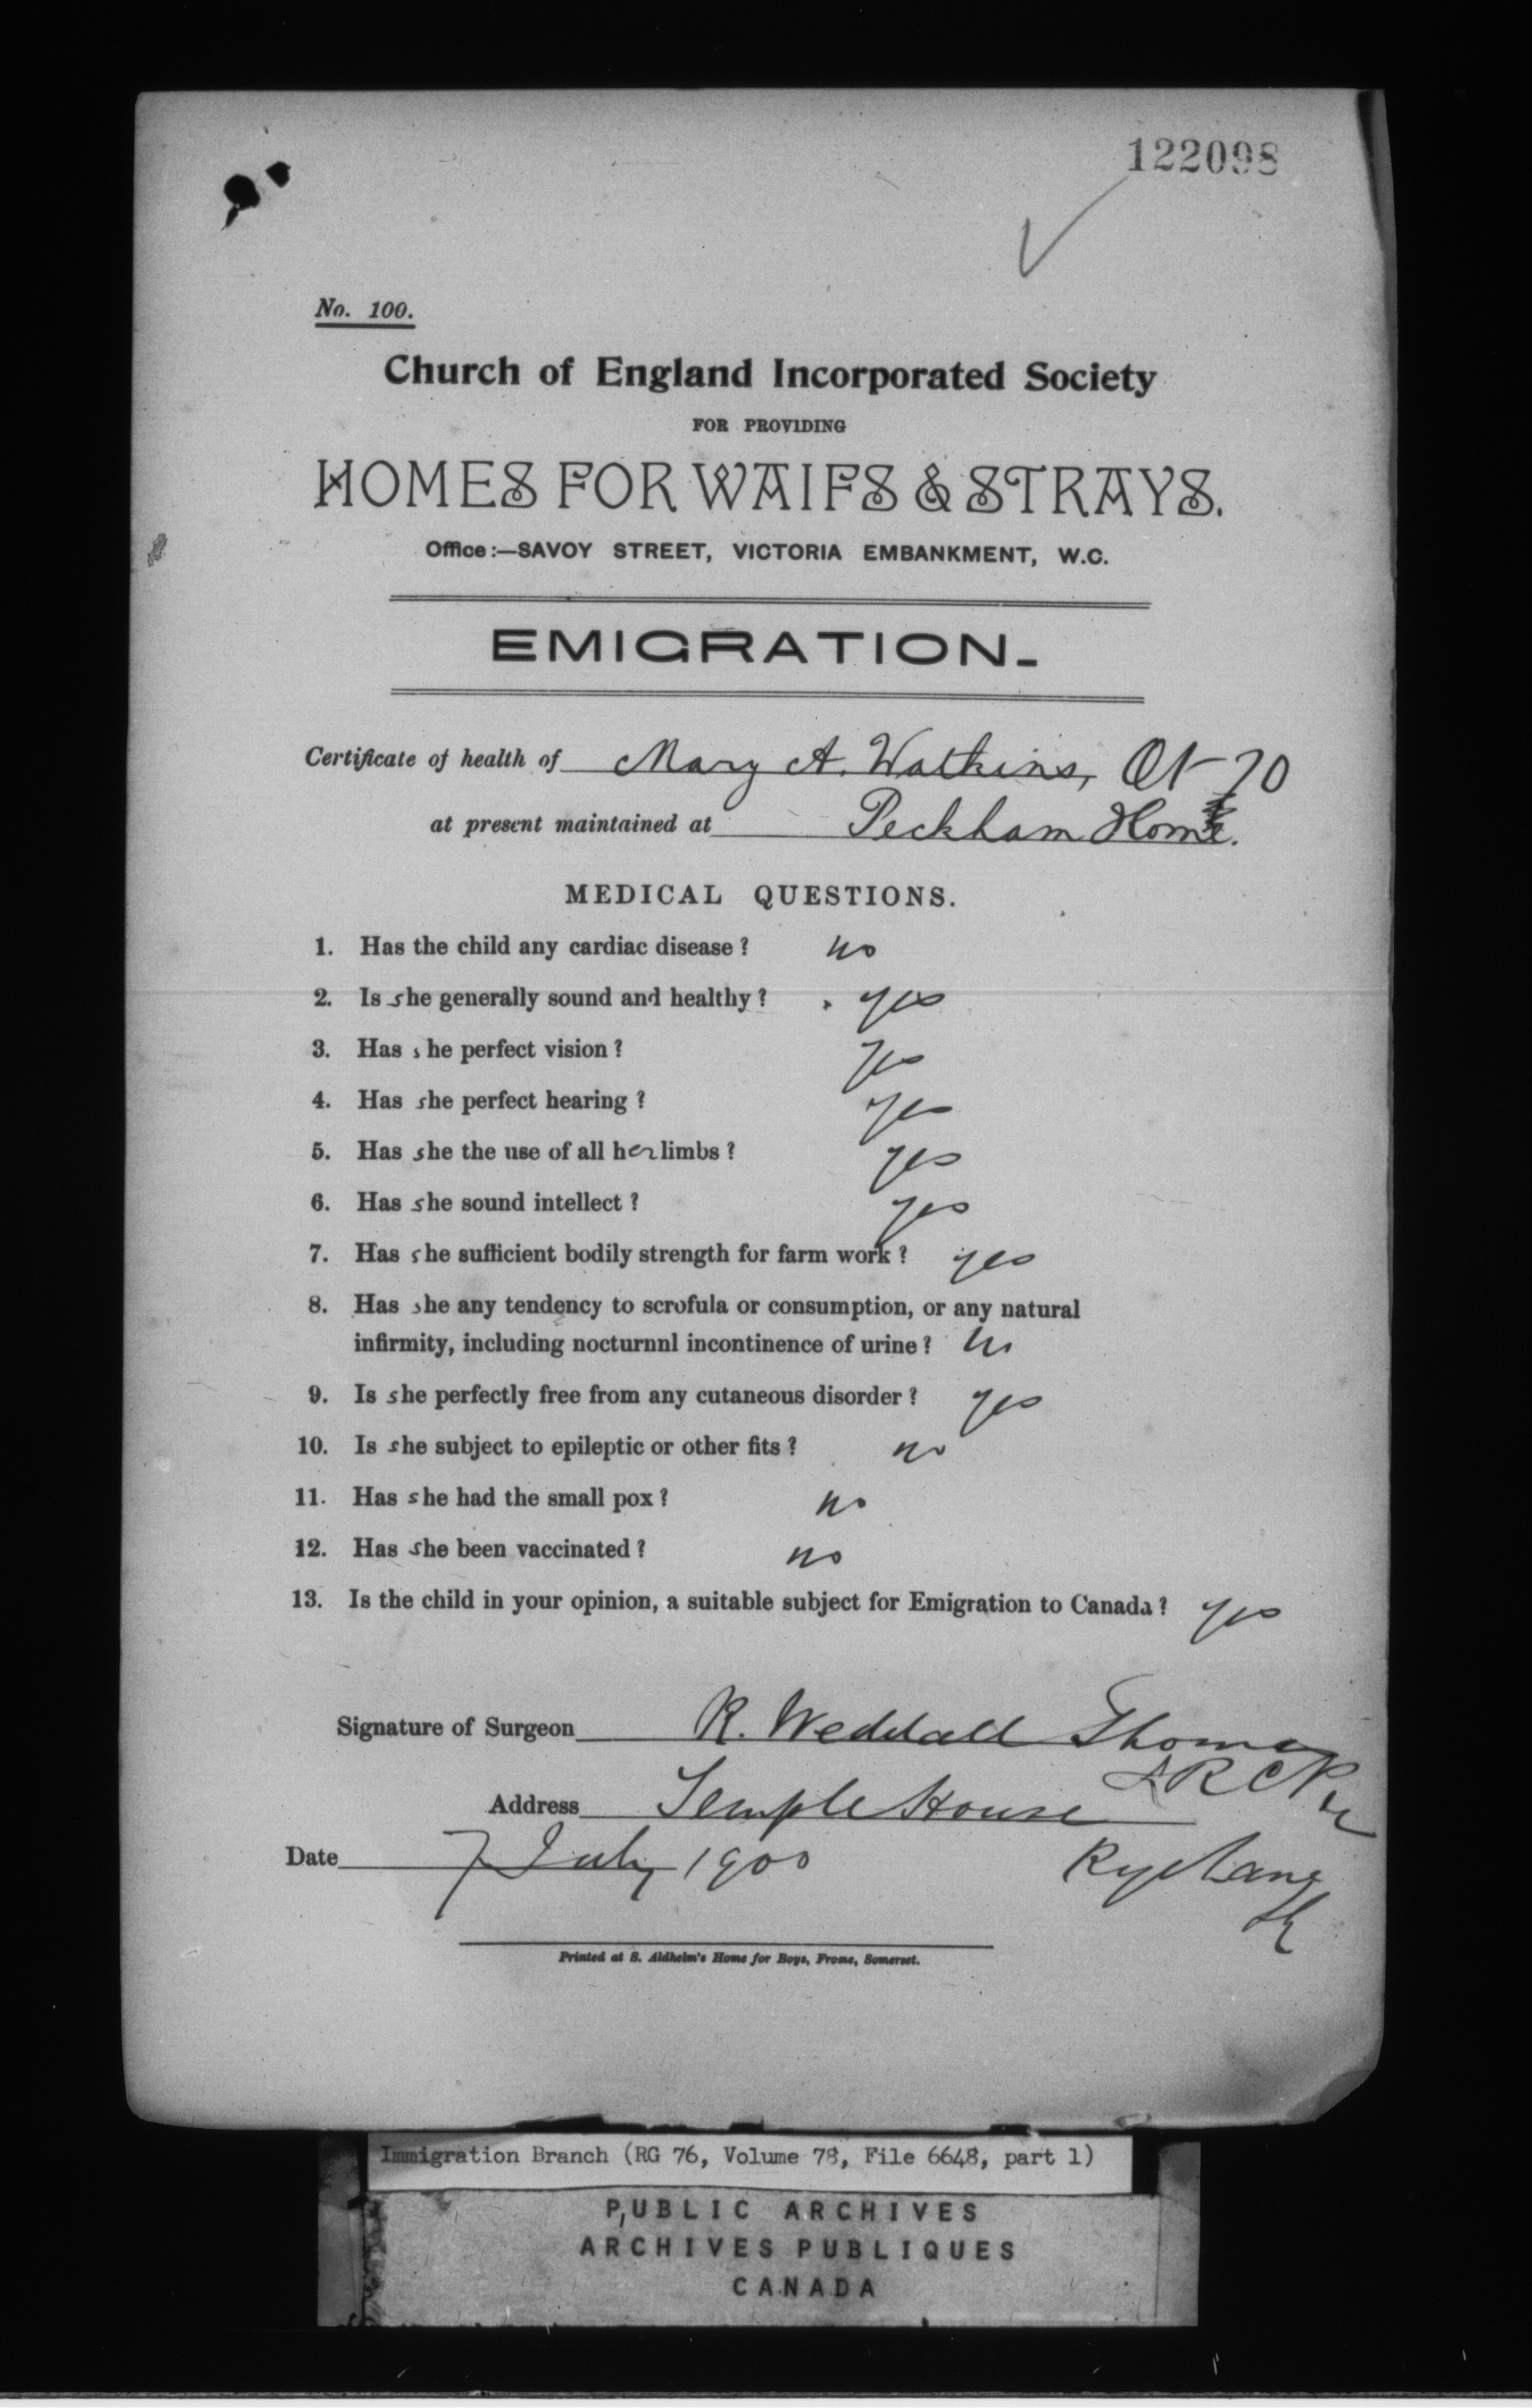 122098
No. 100.
Church of England Incorporated Society
FOR PROVIDING
HOMES FOR WAIFS & STRAYS.
Office:—SAVOY STREET, VICTORIA EMBANKMENT, W.C.
EMIGRATION.
Certificate of health of Mary A. Watkins, 70
at present maintained at Peckham Home.
MEDICAL QUESTIONS.
1. Has the child any cardiac disease? no
2. Is she generally sound and healthy? yes
3. Has she perfect vision? yes
4. Has she perfect hearing? yes
5. Has she the use of all her limbs? yes
6. Has she sound intellect? yes
7. Has she sufficient bodily strength for farm work? yes
8. Has she any tendency to scrofula or consumption, or any natural
infirmity, including nocturnnl incontinence of urine? no
9. Is she perfectly free from any cutaneous disorder? yes
10. Is she subject to epileptic or other fits? no
11. Has she had the small pox? no
12. Has she been vaccinated? no
13. Is the child in your opinion, a suitable subject for Emigration to Canada? yes
Signature of Surgeon R. Weddall Thomas
LRCP
Address Temple House
Date 7 July 1900 Rye Lane
Printed at S. Aldhelm's Home for Boys, Frome, Somerset.
Immigration Branch (RG 76, Volume 78, File 6648, part 1)
PUBLIC ARCHIVES
ARCHIVES PUBLIQUES
CANADA